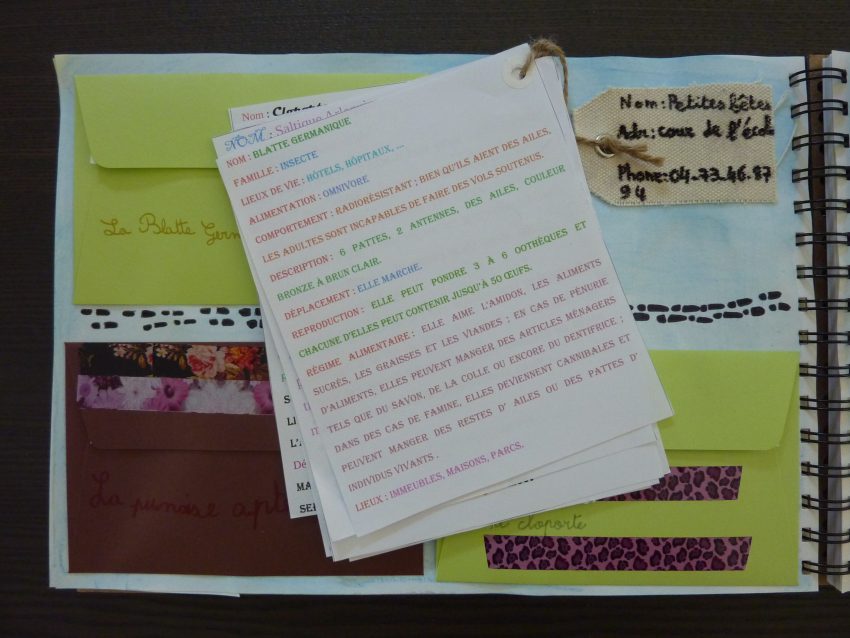 Nom : Cloporte
NOM : Saltique Arlequin
NOM : BLATTE GERMANIQUE
FAMILLE : INSECTE
LIEUX DE VIE : HÔTELS, HÔPITAUX, ...
ALIMENTATION : OMNIVORE
COMPORTEMENT : RADIORÉSISTANT ; BIEN QU'ILS AIENT DES AILES,
LES ADULTES SONT INCAPABLES DE FAIRE DES VOLS SOUTENUS.
DESCRIPTION : 6 PATTES, 2 ANTENNES, DES AILES, COULEUR
BRONZE À BRUN CLAIR.
DÉPLACEMENT : ELLE MARCHE.
REPRODUCTION : ELLE PEUT PONDRE 3 À 6 OOTHÈQUES ET
CHACUNE D'ELLES PEUT CONTENIR JUSQU'À 50 ŒUFS.
RÉGIME ALIMENTAIRE : ELLE AIME L'AMIDON, LES ALIMENTS
SUCRÉS, LES GRAISSES ET LES VIANDES ; EN CAS DE PÉNURIE
D'ALIMENTS, ELLES PEUVENT MANGER DES ARTICLES MÉNAGERS
TELS QUE DU SAVON, DE LA COLLE OU ENCORE DU DENTIFRICE ;
DANS DES CAS DE FAMINE, ELLES DEVIENNENT CANNIBALES ET
PEUVENT MANGER DES RESTES D' AILES OU DES PATTES D'
INDIVIDUS VIVANTS .
LIEUX : IMMEUBLES, MAISONS, PARCS.
Nom : Petites bêtes
Adr : cour de l'école
Phone : 04-73-46-87
94
La Blatte Germ
La punaise apt
cloporte